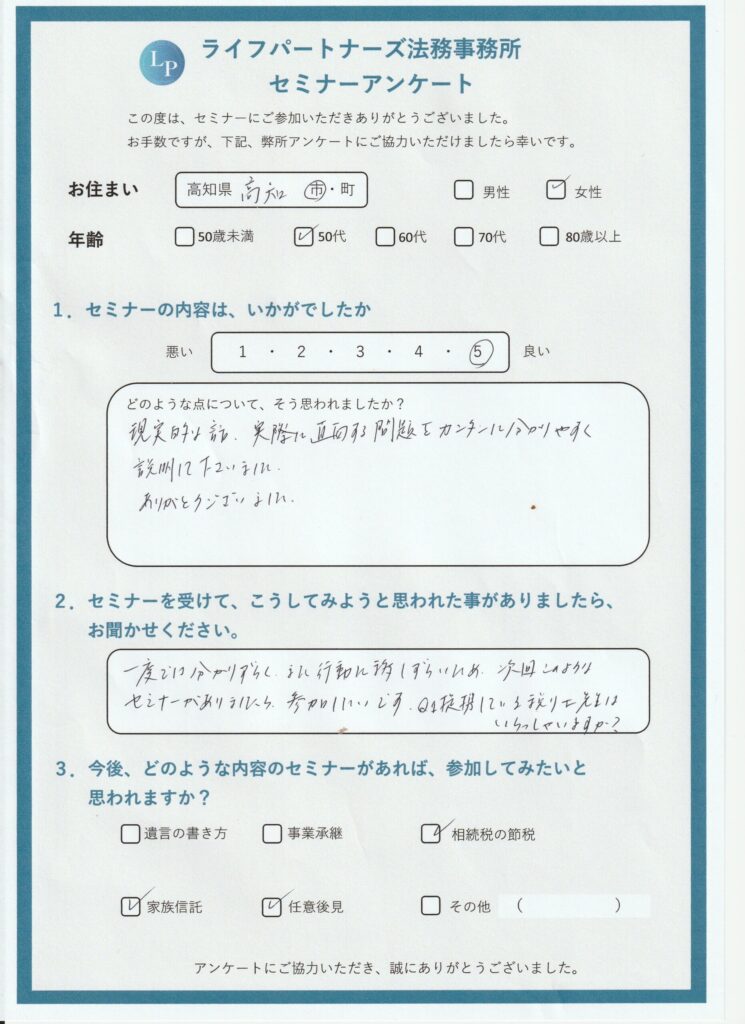 LP
ライフパートナーズ法務事務所
セミナーアンケート
この度は、セミナーにご参加いただきありがとうございました。
お手数ですが、下記、弊所アンケートにご協力いただけましたら幸いです。
お住まい 高知県 高知 市・町 男性 女性
年齢 50歳未満 50代 60代 70代 80歳以上
1．セミナーの内容は、いかがでしたか
悪い 1 ・ 2 ・ 3 ・ 4 ・ 5 良い
どのような点について、そう思われましたか？
現実的な話、実際に直面する問題をカンタンに分かりやすく
説明して下さいました。
ありがとうございました。
2．セミナーを受けて、こうしてみようと思われた事がありましたら、
お聞かせください。
一度では分かりずらく、また行動に移しずらいため、次回このような
セミナーがありましたら、参加したいです。提携している税理士先生は
いらっしゃいますか？
3．今後、どのような内容のセミナーがあれば、参加してみたいと
思われますか？
遺言の書き方 事業承継 相続税の節税
家族信託 任意後見 その他 （ ）
アンケートにご協力いただき、誠にありがとうございました。